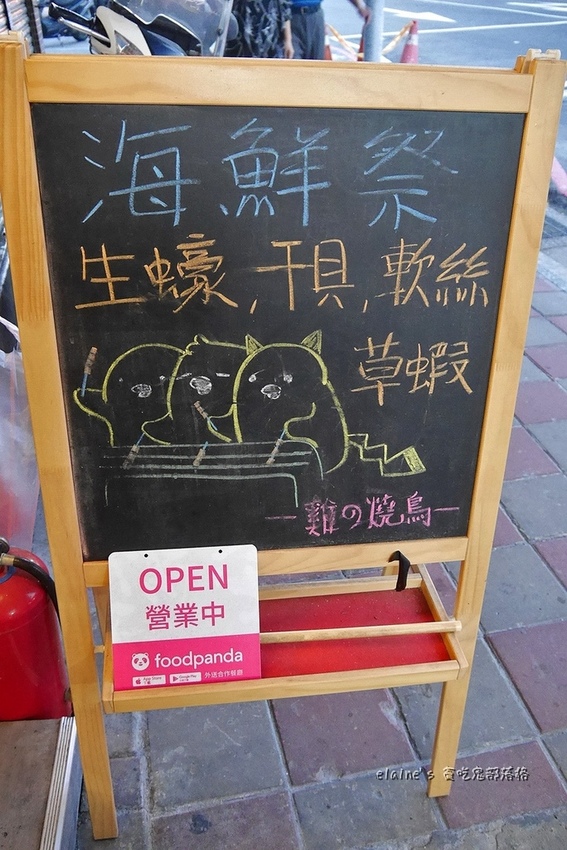 海鮮祭
生蠔,干貝,軟絲
草蝦
—雞の燒鳥—
OPEN
營業中
foodpanda
App Store
Google Play
外送合作餐廳
elaine's 貪吃鬼部落格